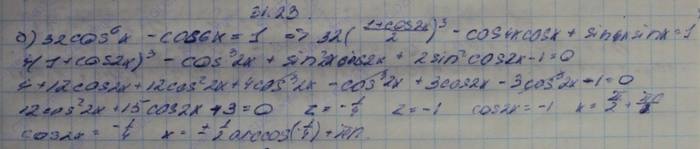 31.23
б) 32cos⁶x - cos6x = 1 => 32((1+cos2x)/2)³ - cos4xcosx + sin4xsinx = 1
4(1+cos2x)³ - cos³2x + sin²2xcos2x + 2sin²cos2x - 1 = 0
4 + 12cos2x + 12cos²2x + 4cos³2x - cos³2x + 3cos2x - 3cos³2x - 1 = 0
12cos²2x + 15cos2x + 3 = 0 z = -1/4 z = -1 cos2x = -1 x = π/2 + πn
cos2x = -1/4 x = ± 1/2 arccos(-1/4) + πn.